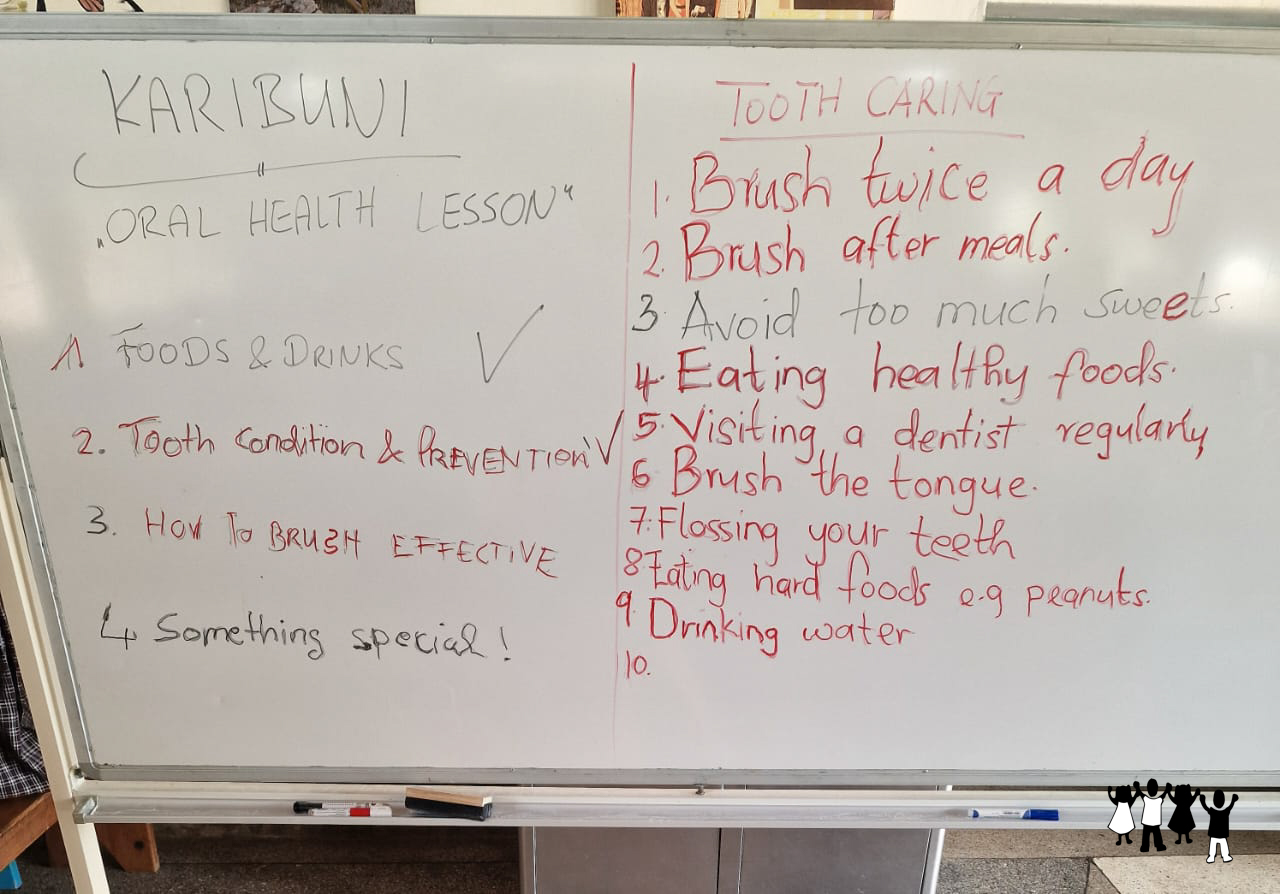 KARIBUNI
„ORAL HEALTH LESSON“
1. FOODS & DRINKS ✓
2. Tooth Condition & PREVENTION ✓
3. HOW To BRUSH EFFECTIVE
4 Something special!
TOOTH CARING
1. Brush twice a day
2. Brush after meals.
3 Avoid too much sweets.
4. Eating healthy foods.
5. Visiting a dentist regularly
6 Brush the tongue.
7. Flossing your teeth
8 Eating hard foods e.g peanuts.
9. Drinking water
10.